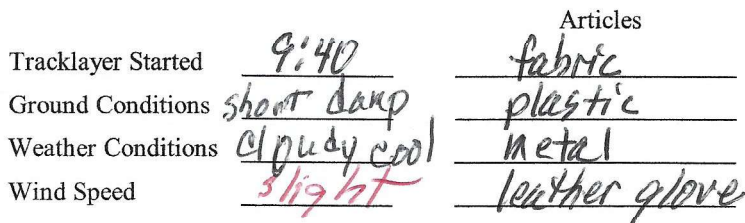 Articles
Tracklayer Started 9:40 fabric
Ground Conditions short damp plastic
Weather Conditions cloudy cool metal
Wind Speed slight leather glove